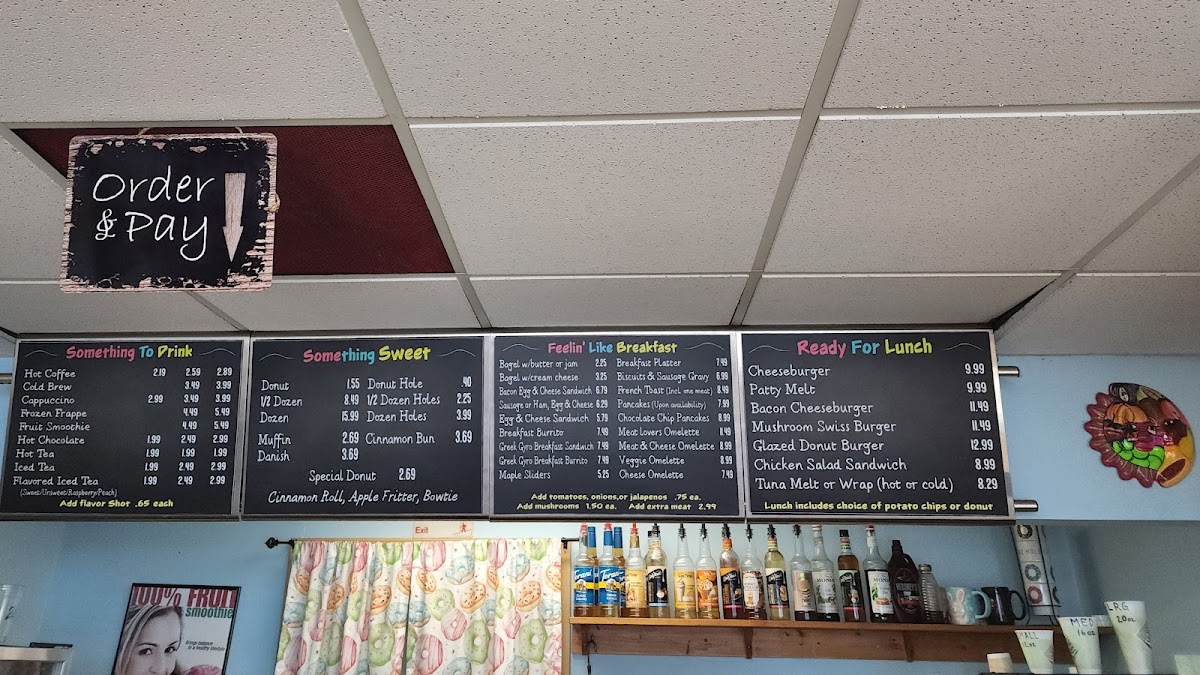 Order
& Pay
Something To Drink
Hot Coffee 2.19 2.59 2.89
Cold Brew 3.49 3.99
Cappuccino 2.99 3.49 3.99
Frozen Frappe 4.49 5.49
Fruit Smoothie 4.49 5.49
Hot Chocolate 1.99 2.49 2.99
Hot Tea 1.99 1.99 1.99
Iced Tea 1.99 2.49 2.99
Flavored Iced Tea 1.99 2.49 2.99
(Sweet/Unsweet/Raspberry/Peach)
Add flavor Shot .65 each
Something Sweet
Donut 1.55 Donut Hole .40
1/2 Dozen 8.49 1/2 Dozen Holes 2.25
Dozen 15.99 Dozen Holes 3.99
Muffin 2.69 Cinnamon Bun 3.69
Danish 3.69
Special Donut 2.69
Cinnamon Roll, Apple Fritter, Bowtie
Feelin' Like Breakfast
Bagel w/butter or jam 2.25 Breakfast Platter 7.49
Bagel w/cream cheese 3.25 Biscuits & Sausage Gravy 6.99
Bacon Egg & Cheese Sandwich 6.79 French Toast (Incl. one meat) 8.49
Sausage or Ham, Egg & Cheese 6.29 Pancakes (Upon availability) 7.99
Egg & Cheese Sandwich 5.79 Chocolate Chip Pancakes 8.99
Breakfast Burrito 7.49 Meat lovers Omelette 11.49
Greek Gyro Breakfast Sandwich 7.49 Meat & Cheese Omelette 8.99
Greek Gyro Breakfast Burrito 7.49 Veggie Omelette 8.99
Maple Sliders 5.25 Cheese Omelette 7.49
Add tomatoes, onions,or jalapenos .75 ea.
Add mushrooms 1.50 ea. Add extra meat 2.99
Ready For Lunch
Cheeseburger 9.99
Patty Melt 9.99
Bacon Cheeseburger 11.49
Mushroom Swiss Burger 11.49
Glazed Donut Burger 12.99
Chicken Salad Sandwich 8.99
Tuna Melt or Wrap (hot or cold) 8.29
Lunch includes choice of potato chips or donut
Exit
100% FRUIT
smoothie
Brings balance
to a healthy lifestyle
Torani Torani
LRG
20oz
MED
16oz
12oz